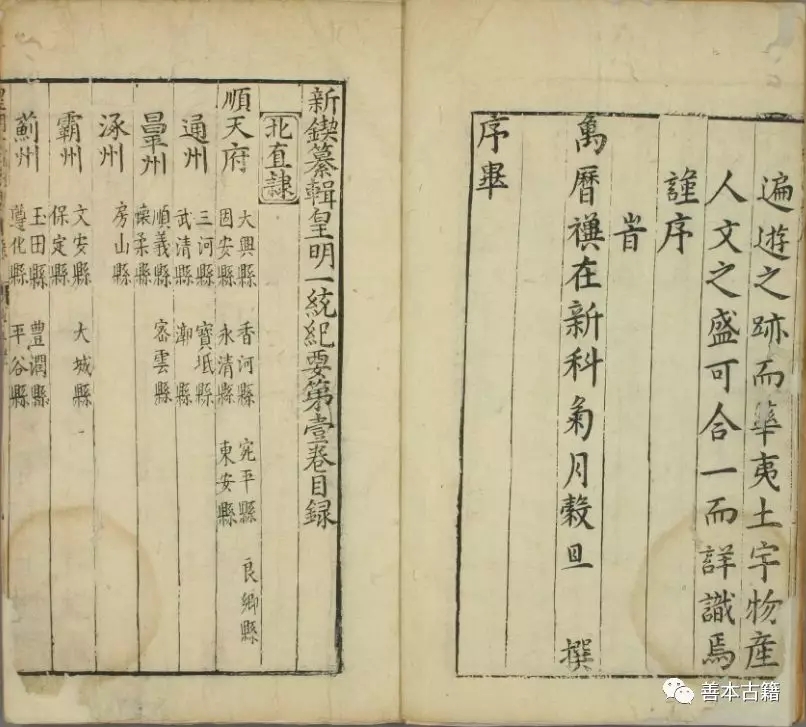 遍遊之跡而華夷土宇物產
人文之盛可合一而詳識焉
謹序
旹
萬曆禩在新科菊月穀旦 撰
序畢
新鍥纂輯皇明一統紀要第壹卷目録
北直隷
順天府 大興縣 香河縣 宛平縣 良鄉縣
固安縣 永清縣 東安縣
通州 三河縣 寶坻縣
武清縣 漷縣
昌平州 順義縣 密雲縣
懷柔縣
涿州 房山縣
霸州 文安縣 大城縣
保定縣
薊州 玉田縣 豐潤縣
遵化縣 平谷縣
善本古籍